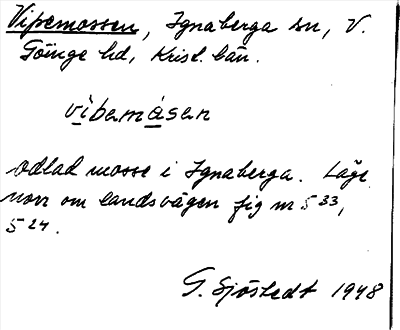 Vipemossen, Ignaberga sn, V.
Göinge hd, Krist. län.
vibemåsen
Odlad mosse i Ignaberga. Läge
norr om landsvägen fig nr 5 33,
5 24.
G. Sjöstedt 1948